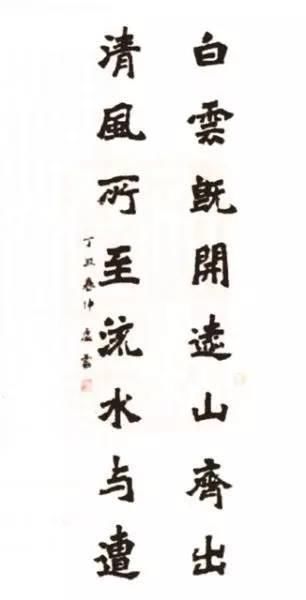 白雲既開遠山齊出
清風所至流水与遭
丁丑春仲